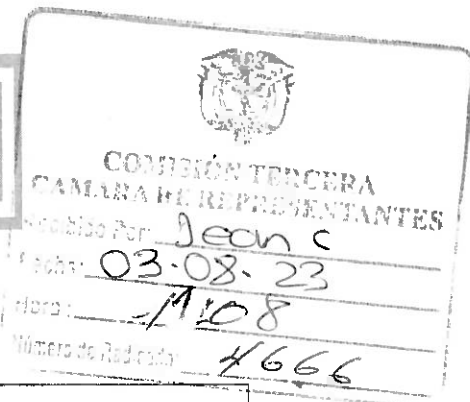 COMISIÓN TERCERA
CAMARA DE REPRESENTANTES
Recibido Por: Jean C
Fecha: 03-08-23
Hora: 11:08
Número de Radicado: 4666